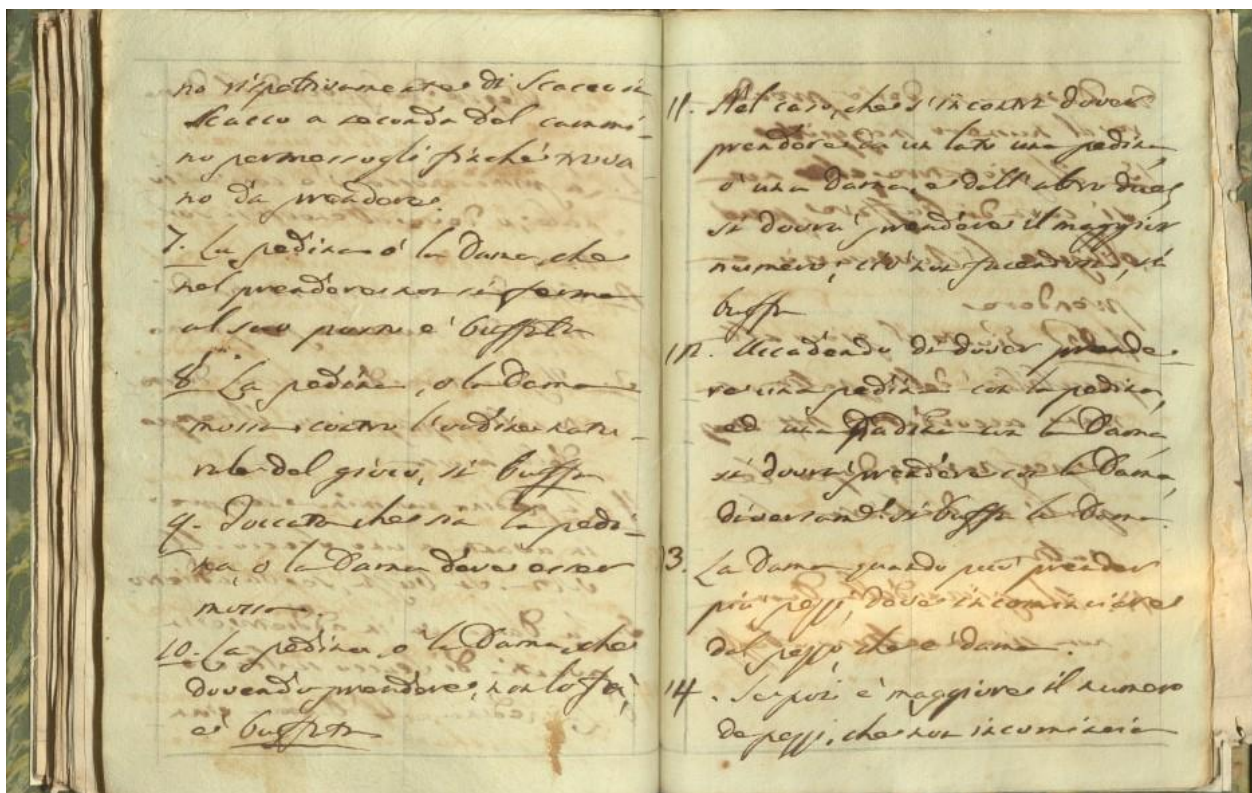 no rispetivamente di Scacco in
Scacco a seconda del cammi-
no permessogli finché trova
no da prendere.
7. La pedina o la Dama, che
nel prendere non si ferma
al suo è buffata
8. La pedina, o la Dama
mossa contro l'ordine natu-
rale del gioco, si buffa
9. Toccata che sia la pedi-
na, o la Dama deve esser
mossa.
10. La pedina, o la Dama, che
dovendo prendere, non lo fa,
è buffata
11. Nel caso, che s'incontri dover
prendere da un lato una pedina
o una Dama, e dall'altro due,
si dovrà prendere il maggior
numero; ciò non facendosi, si
buffa
12. Accadendo di dover prende-
re una pedina con la pedina,
ed una Padina con la Dama
si dovrà prendere con la Dama,
diversam.e si buffa la Dama.
13. La Dama quando può prender
più pezzi, deve incominciare
dal pezzo, che è dama.
14. Se poi è maggiore il numero
de pezzi, che non incomincia